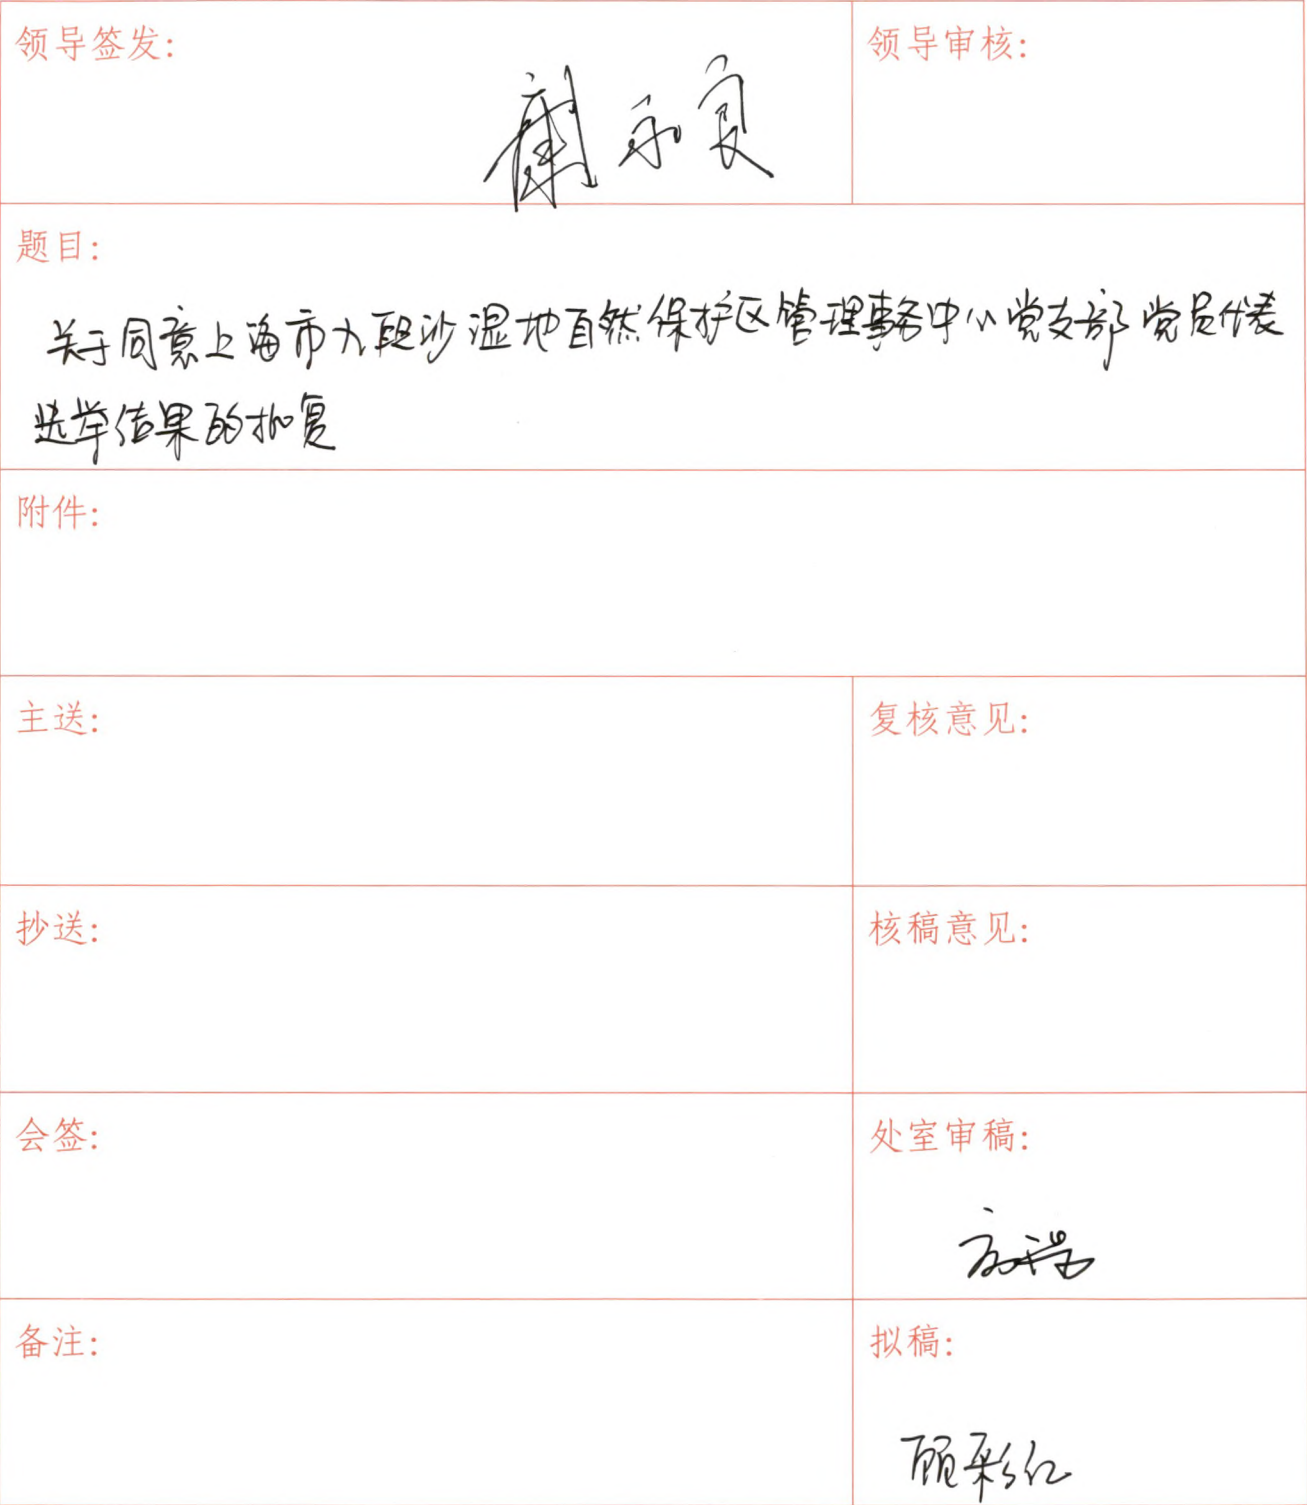 领导签发:
领导审核:
题目:
关于同意上海市九段沙湿地自然保护区管理事务中心党支部党员代表
选举结果的批复
附件:
主送:
复核意见:
抄送:
核稿意见:
会签:
处室审稿:
备注:
拟稿:
顾彩仁